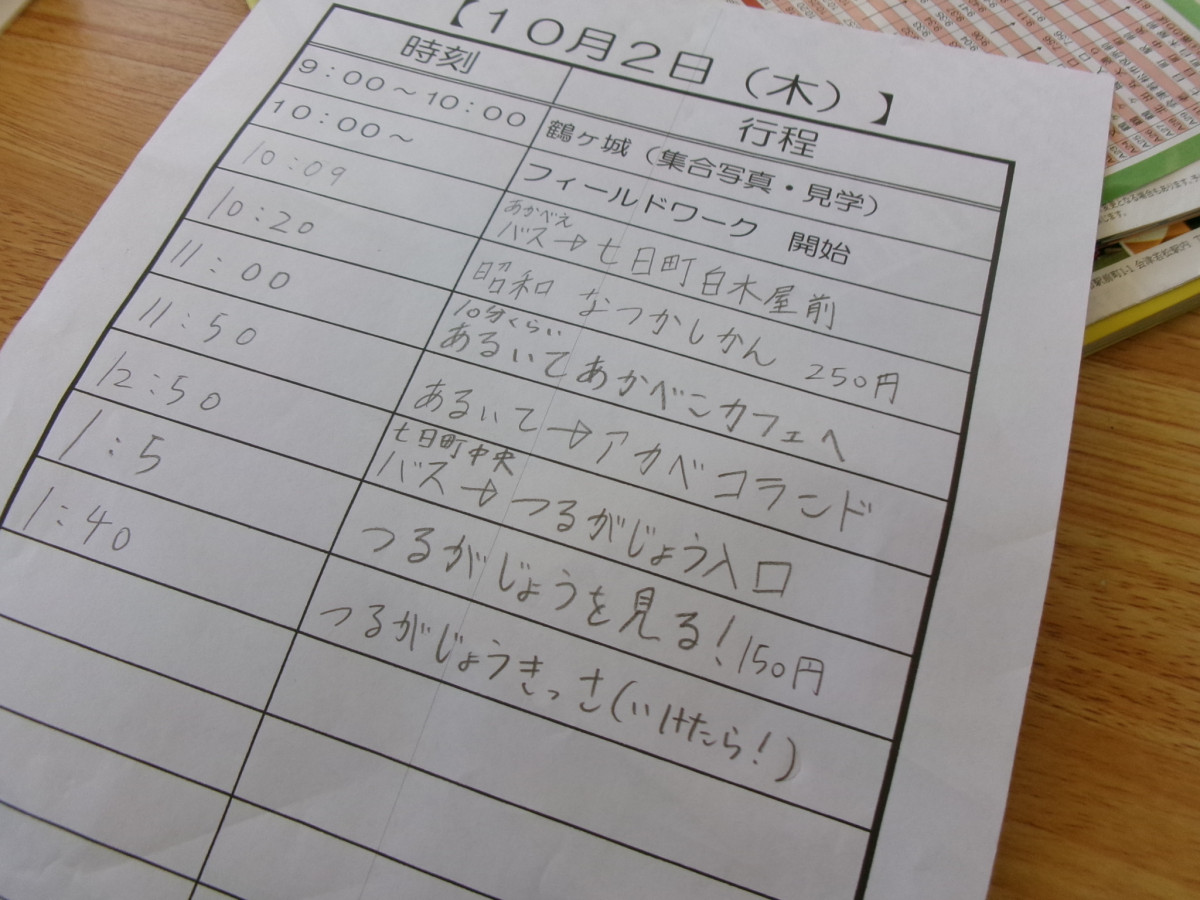 【10月2日(木)】
時刻 行程
9:00～10:00 鶴ヶ城(集合写真・見学)
10:00～ フィールドワーク 開始
あかべえ
10:09 バス→七日町白木屋前
10:20 昭和 なつかしかん 250円
10分くらい
11:00 あるいてあかべこカフェへ
11:50 あるいて→アカベコランド
七日町中央
12:50 バス→つるがじょう入口
1:5 つるがじょうを見る!150円
1:40 つるがじょうきっさ(いけたら!)